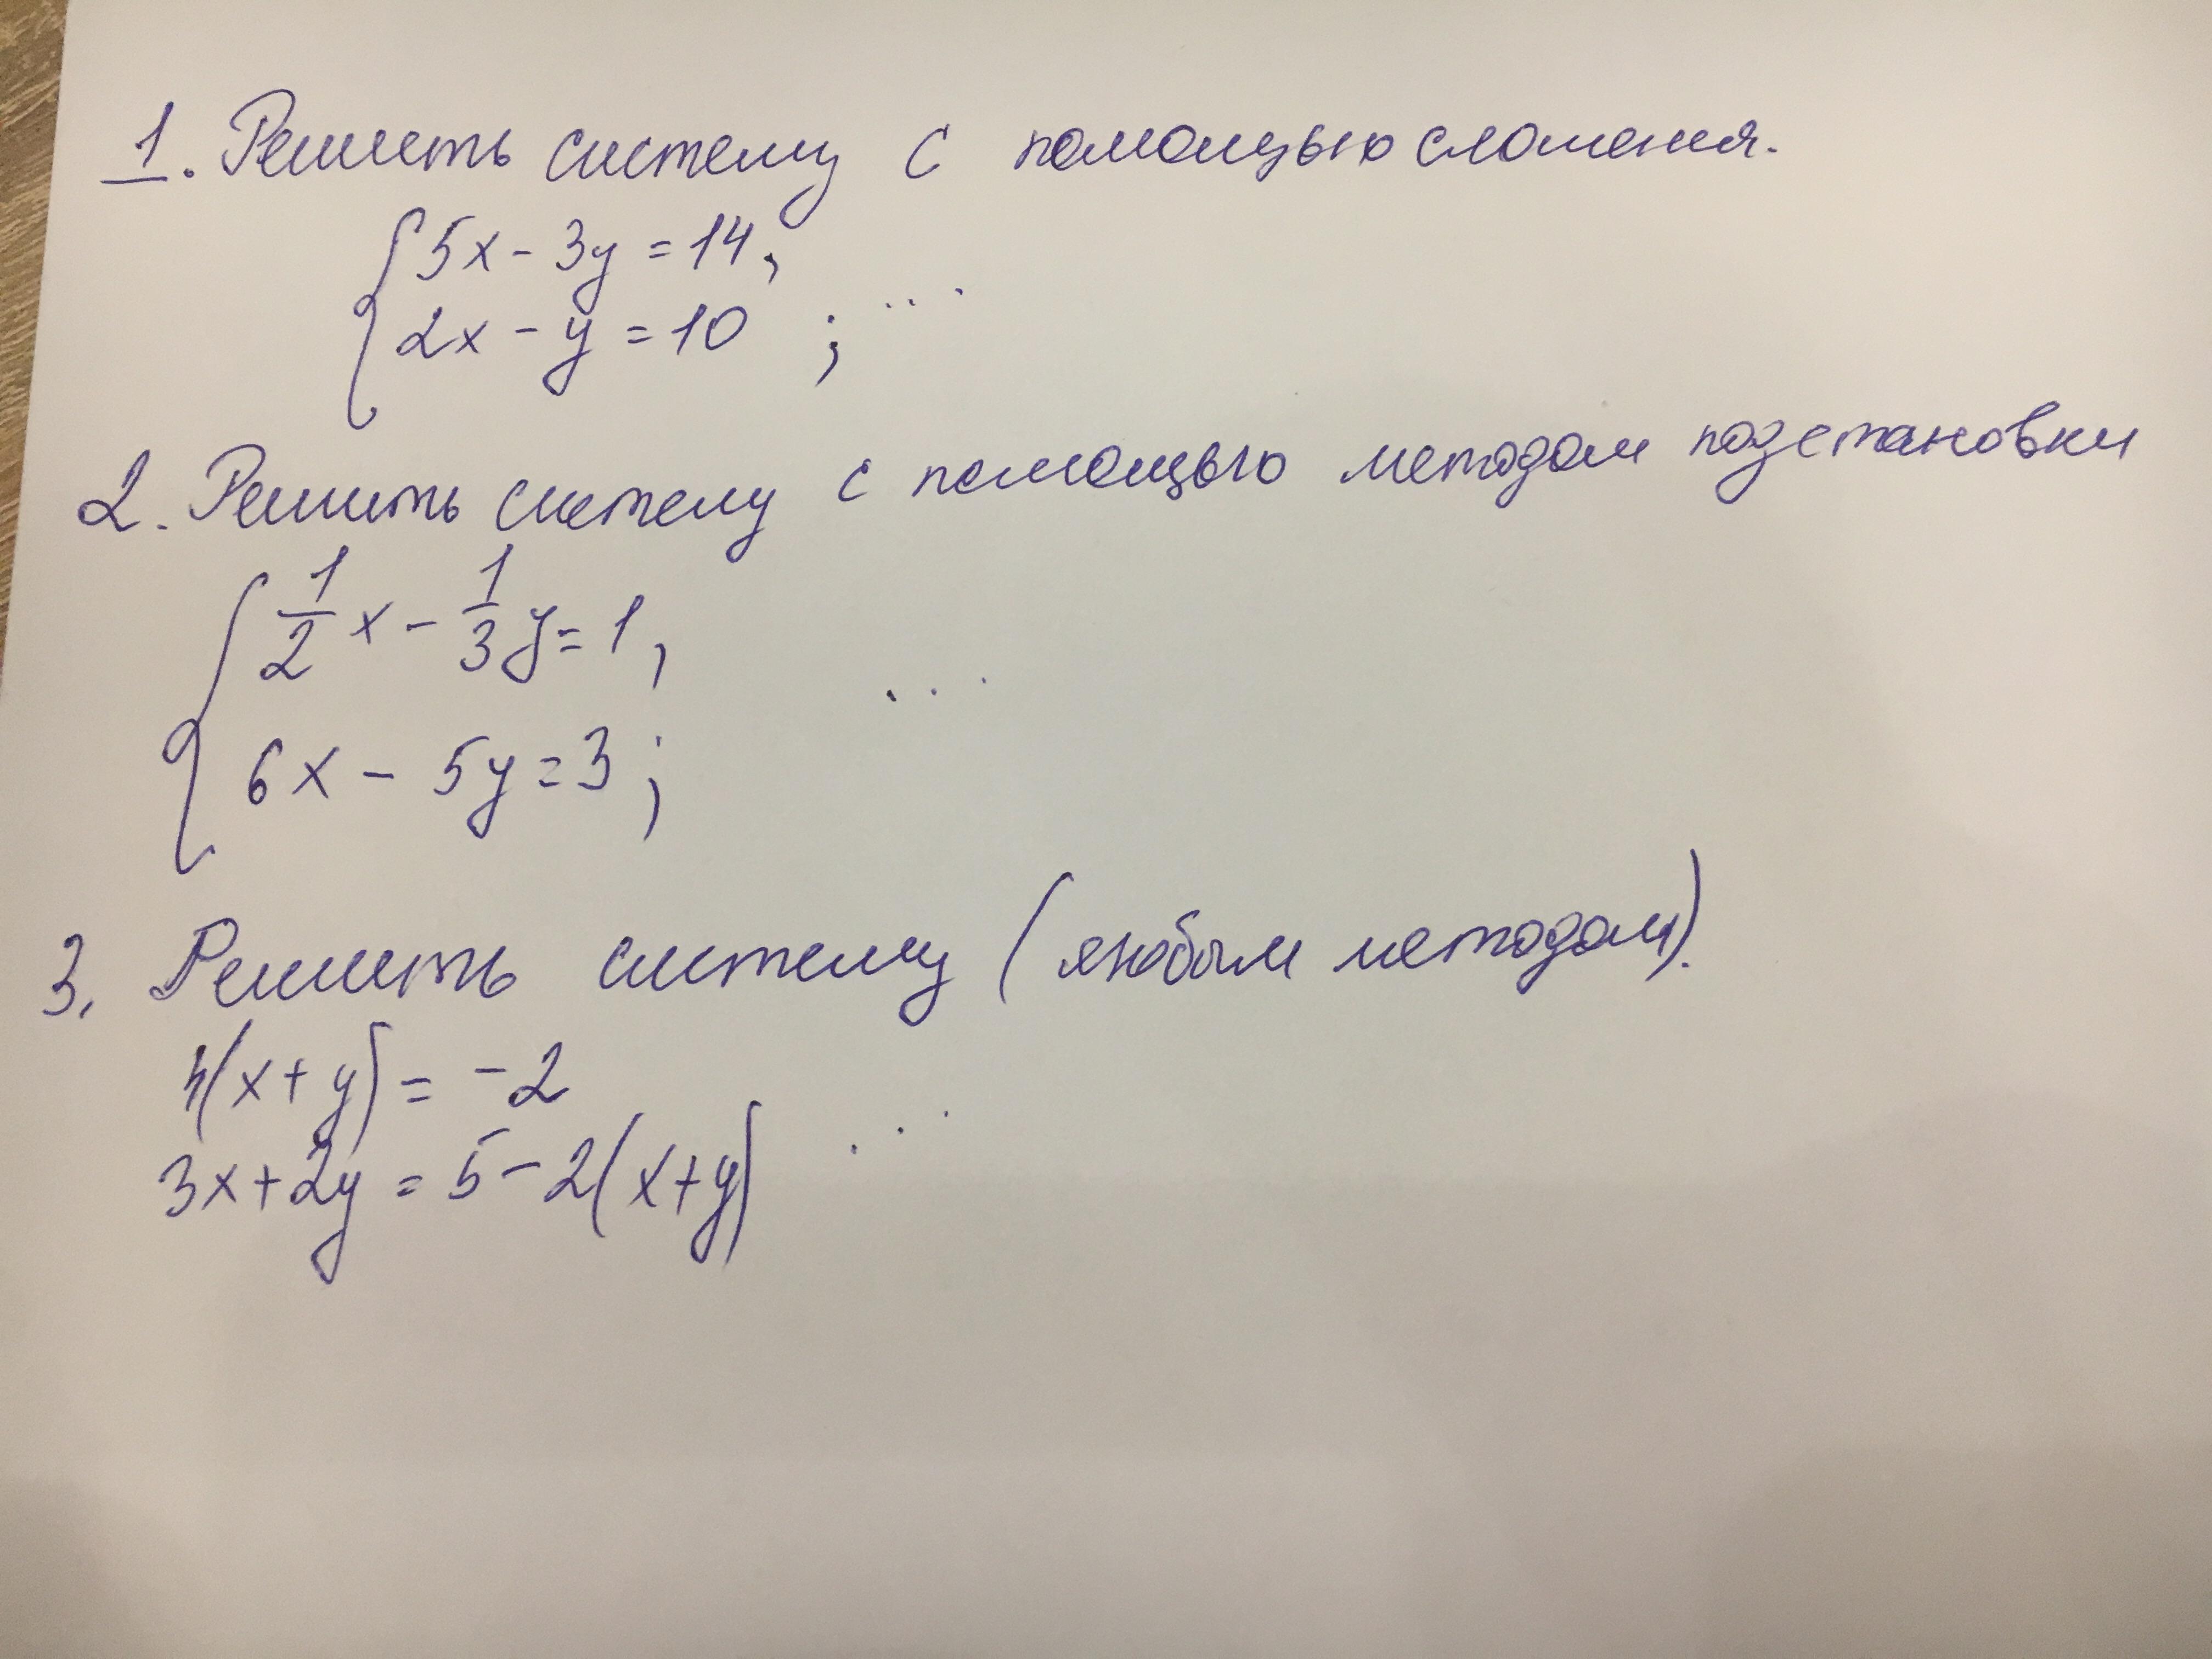 1. Решить систему с помощью сложения.
5x - 3y = 14,
2x - y = 10 ; ...
2. Решить систему с помощью методом подстановки
1/2 x - 1/3 y = 1,
...
6x - 5y = 3 ;
3. Решить систему (любым методом).
4(x + y) = -2
3x + 2y = 5 - 2(x + y) ...